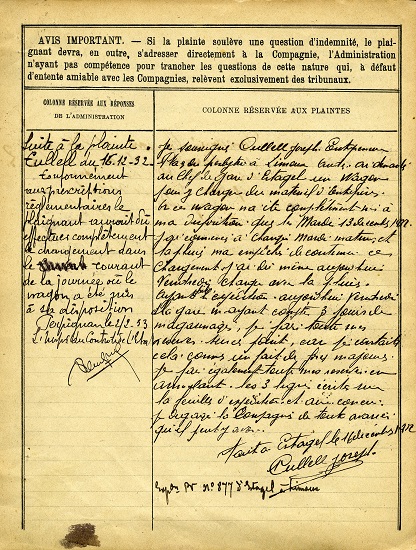 AVIS IMPORTANT. — Si la plainte soulève une question d'indemnité, le plai-
gnant devra, en outre, s'adresser directement à la Compagnie, l'Administration
n'ayant pas compétence pour trancher les questions de cette nature qui, à défaut
d'entente amiable avec les Compagnies, relèvent exclusivement des tribunaux.
COLONNE RÉSERVÉE AUX RÉPONSES
DE L'ADMINISTRATION
Suite à la plainte
Cullell du 16.12.32
Conformément
aux prescriptions
réglementaires le
plaignant aurait dû
effectuer complètement
le chargement dans
le courant
de la journée où le
wagon a été mis
à sa disposition
Perpignan le 2/2/33
COLONNE RÉSERVÉE AUX PLAINTES
Je soussigné Cullell Joseph Entrepreneur
à Limoux Aude
au chef de Gare d'Estagel un Wagon
pour charger du matériel d'Entreprise
ce wagon n'a été complètement mis à
ma disposition que le Mardi 13 décembre 1932
j'ai commencé à charger Mardi matin, et
la pluie m'a empêché de continuer ce
chargement j'ai dû même aujourd'hui
Vendredi charger avec la pluie.
Ayant l'expédition aujourd'hui Vendredi
la gare m'ayant compté 3 jours de
magasinage, je fais toutes mes
réserves sur ce point, car je
cela comme un fait de force majeure
je fais également toutes mes réserves en
les 3 lignes écrites sur
la feuille d'expédition et
je dégage la Compagnie de toute avarie
qu'il peut y avoir
Fait à Estagel le 16 décembre 1932
Cullell Joseph
Exp on PV No 877 d'Estagel à Limoux